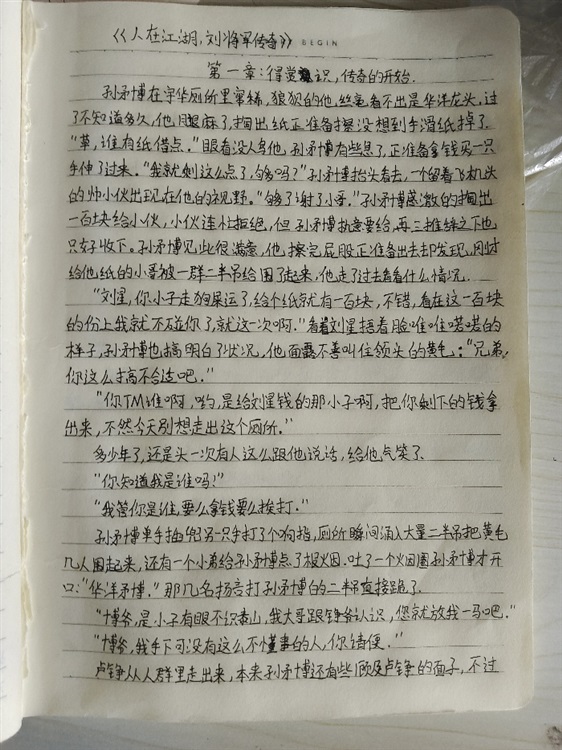 《人在江湖,刘将军传奇》 BEGIN
第一章:得赏识,传奇的开始.
孙矛博在宇华厕所里窜稀,狼狈的他,丝毫看不出是华洋龙头,过
了不知道多久,他腿麻了,掏出纸正准备擦没想到手滑纸掉了.
"草,谁有纸借点."眼看没人鸟他,孙矛博有些急了,正准备拿钱买一只
手伸了过来."我就剩这么点了,够吗?"孙矛博抬头看去,一个留着飞机头
的帅小伙出现在他的视野."够了谢了小哥."孙矛博感激的掏出
一百块给小伙,小伙连忙拒绝,但孙矛博执意要给,再三推辞之下也
只好收下.孙矛博见此很满意,他擦完屁股正准备出去却发现,刚才
给他纸的小哥被一群二半吊给围了起来,他走了过去看看什么情况.
"刘星,你小子走狗屎运了,给个纸就有一百块,不错,看在这一百块
的份上我就不碰你了,就这一次啊."看着刘星捂着脸唯唯喏喏的
样子,孙矛博也搞明白了状况,他面露不善叫住领头的黄毛:"兄弟,
你这么搞不合适吧."
"你TM谁啊,哟,是给刘星钱的那小子啊,把你剩下的钱拿
出来,不然今天别想走出这个厕所."
多少年了,还是头一次有人这么跟他说话,给他气笑了.
"你知道我是谁吗!"
"我管你是谁,要么拿钱要么挨打."
孙矛博单手抽烟另一只手打了个响指,厕所瞬间涌入大量二半吊把黄毛
几人围起来,还有一个小弟给孙矛博点了根烟.吐了一个火因圈孙矛博才开
口:"华洋矛博."那几名扬言打孙矛博的二半吊直接跪了.
"博爷,是小子有眼不识泰山,我大哥跟铮爷认识,您就放我一马吧."
"博爷,我手下可没有这么不懂事的人,你请便."
卢铮从人群里走出来,本来孙矛博还有些顾及卢铮的面子,不过